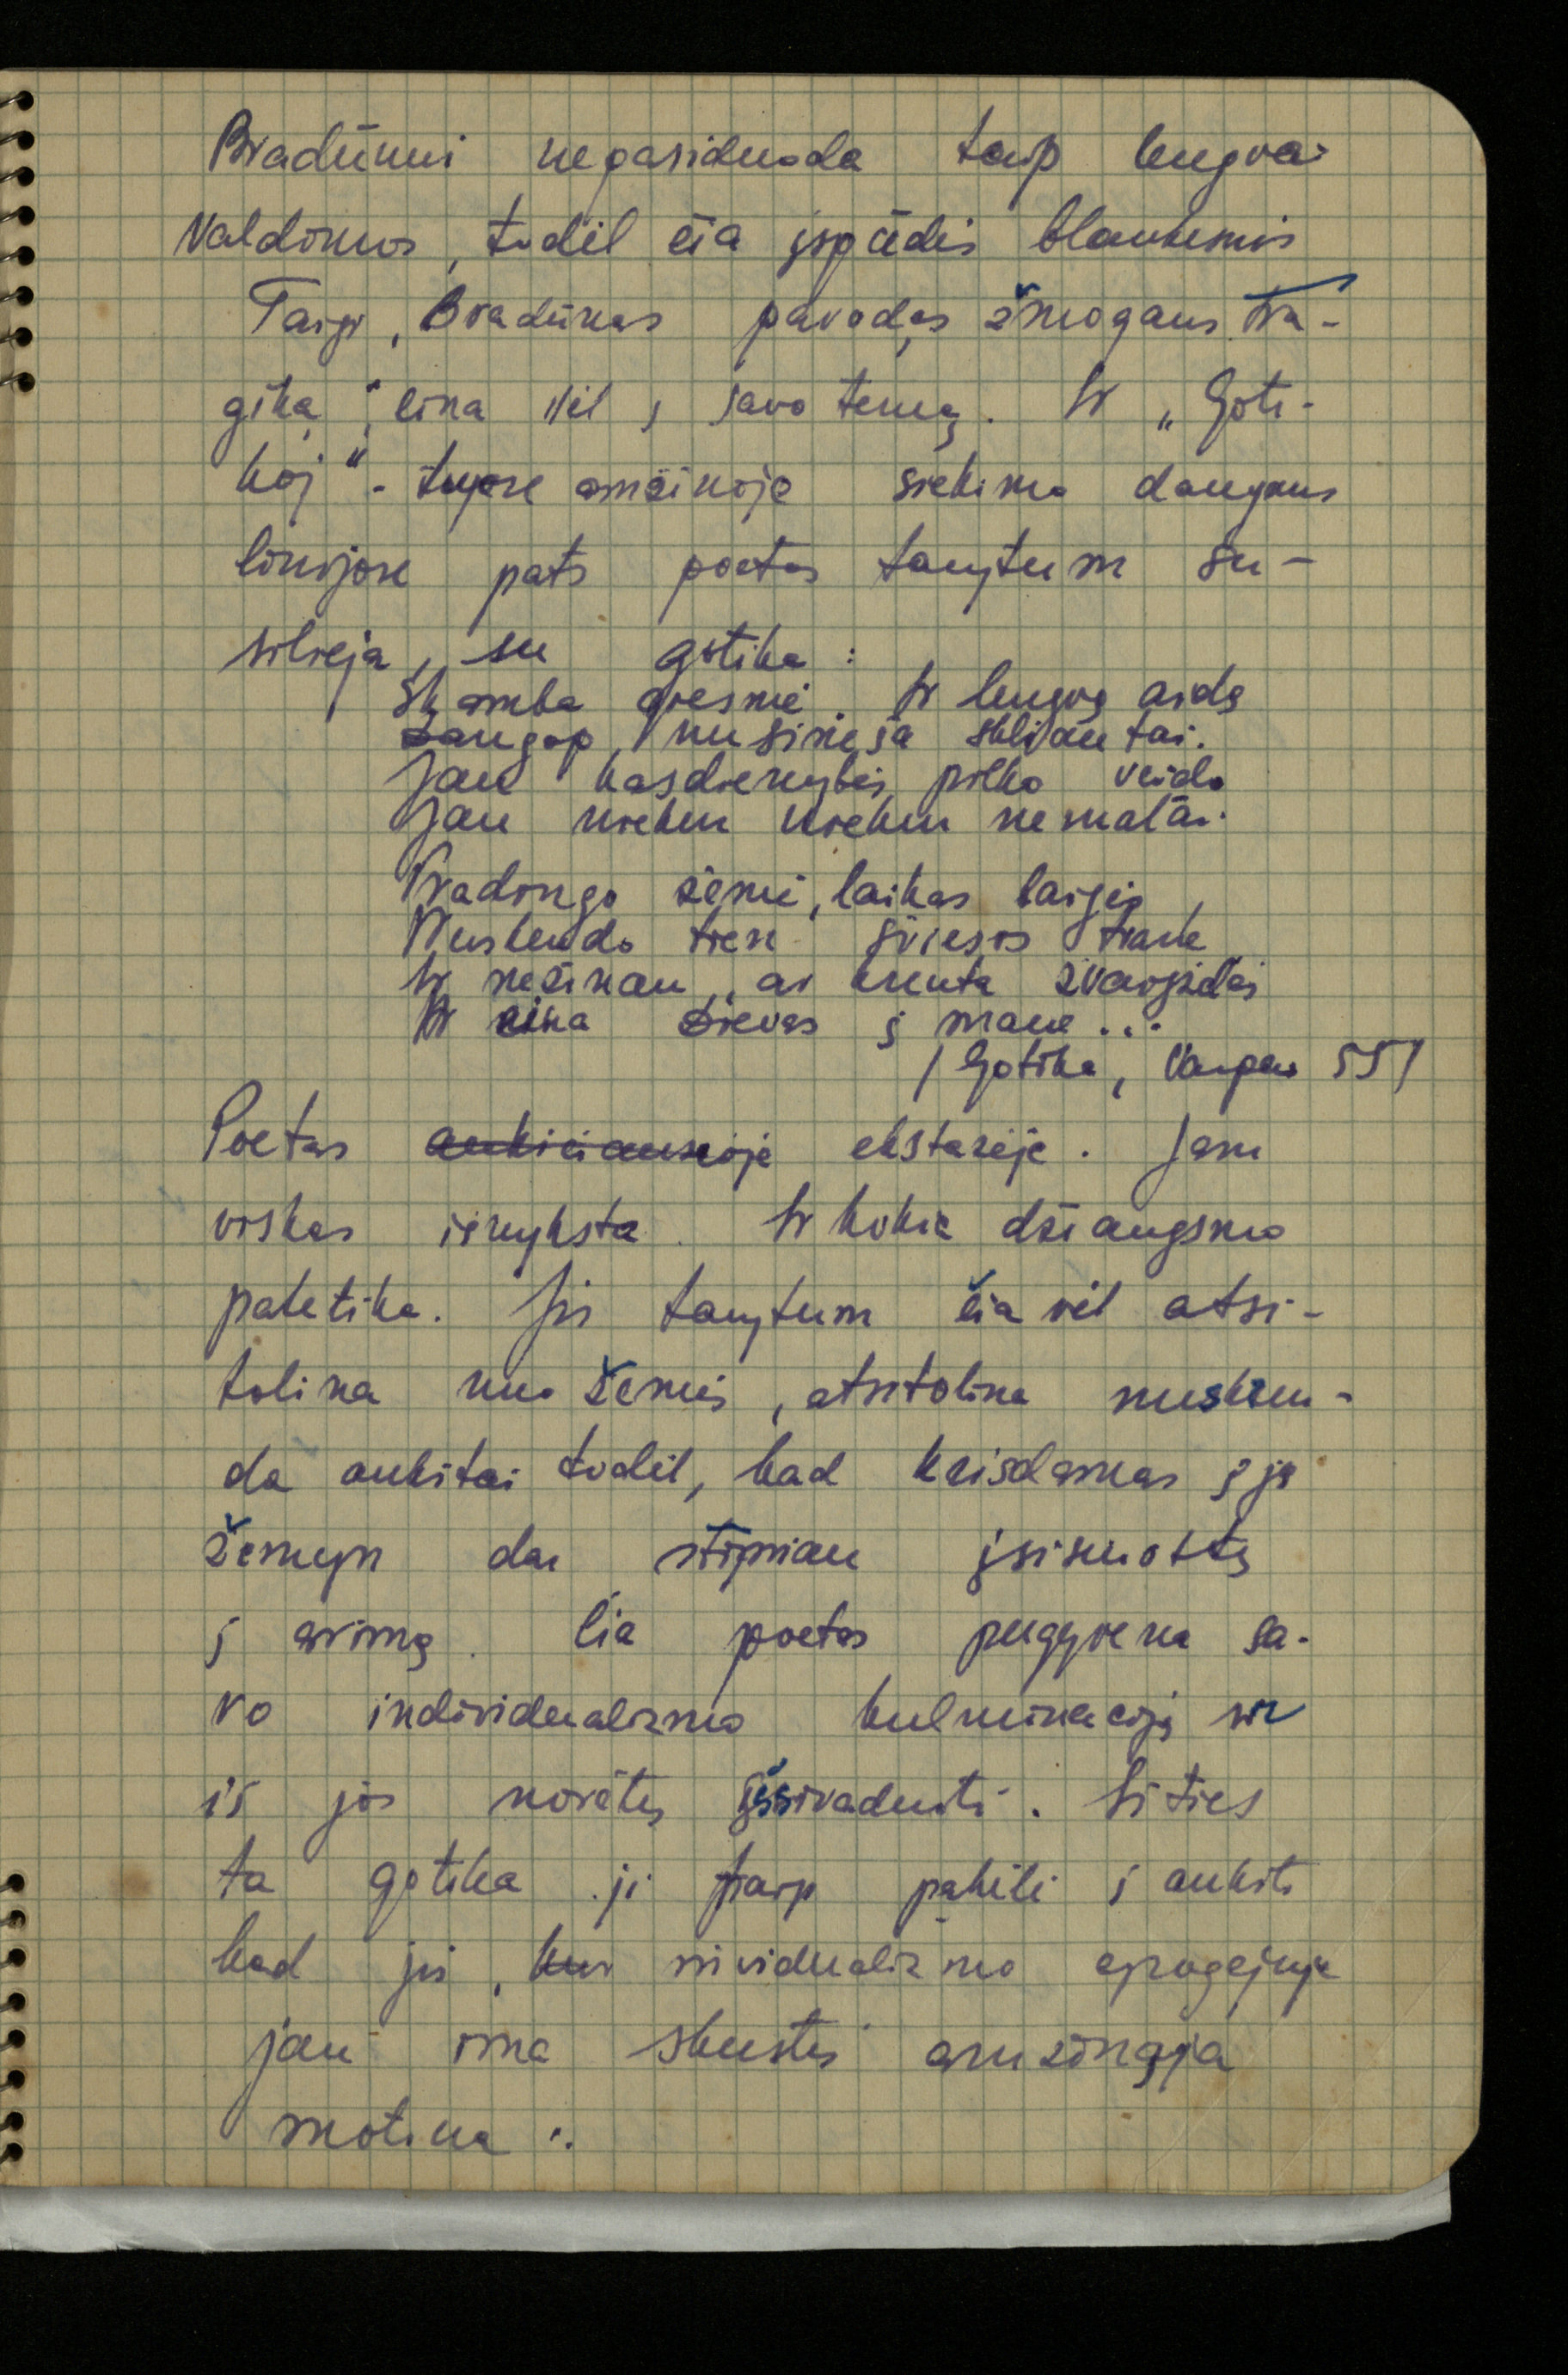 Bradūnui nepasiduoda taip lengvai
valdomos, todėl čia įspūdis blankesnis
Taigi, Bradūnas parodęs žmogaus tra-
giką, eina vėl į savo temą. Ir „Goti-
koj“ - tųjose amžinoje siekimo dangaus
linijose pats poetas tarytum su-
silieja su gotika:
Skamba giesmė. Ir lengvą aidą
Dangop nusineša skliautai.
Jau kasdienybės pilko veido
Jau nieku nieku nematai.
Pradingo žemė, laikas baigės,
Nuskendo tien šviesos trane
Ir nežinau, ar krenta žvaigždės
Ar eina Dievas į mane...
/Gotika, Varpas 55/
Poetas aukščiausioje ekstazėje. Jam
viskas išnyksta. Ir kokia džiaugsmo
patetika. Jis tarytum čia vėl atsi-
tolina nuo žemės, atsitolina nuskren-
da aukštai todėl, kad krisdamas į ją
žemyn dar stipriau įsisuoktų
į arimą. Čia poetas pergyvena sa-
vo individualizmo kulminaciją ir
iš jos norėtų išsivaduoti. Iš ties
ta gotika jį taip pakėlė į aukšti
kad jis, kur individualizmo apogėjuje
jau ima skųstis amžinąja
motina: